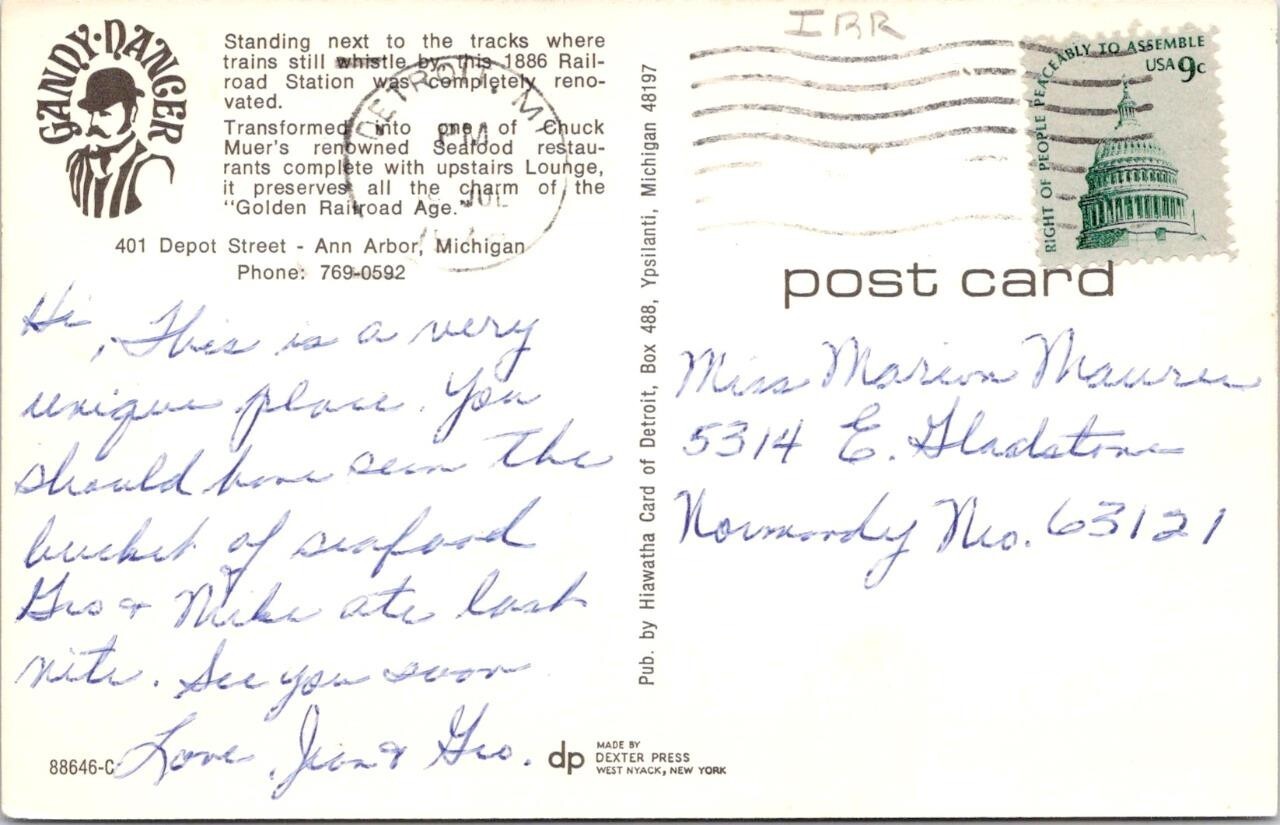 GANDY·DANCER
Standing next to the tracks where
trains still whistle by, this 1886 Rail-
road Station was completely reno-
vated.
Transformed into one of Chuck
Muer's renowned Seafood restau-
rants complete with upstairs Lounge,
it preserves all the charm of the
"Golden Railroad Age."
401 Depot Street - Ann Arbor, Michigan
Phone: 769-0592
DETROIT, MI
PM
JUL
Hi, This is a very
unique place. You
should have seen the
bucket of seafood
Geo & Mike ate last
nite. See you soon
Love, Jean & Geo.
88646-C
Pub. by Hiawatha Card of Detroit, Box 488, Ypsilanti, Michigan 48197
dp MADE BY
DEXTER PRESS
WEST NYACK, NEW YORK
IBR
RIGHT OF PEOPLE PEACEABLY TO ASSEMBLE
USA 9c
post card
Miss Marion Maurer
5314 E. Gladstone
Normandy Mo. 63121